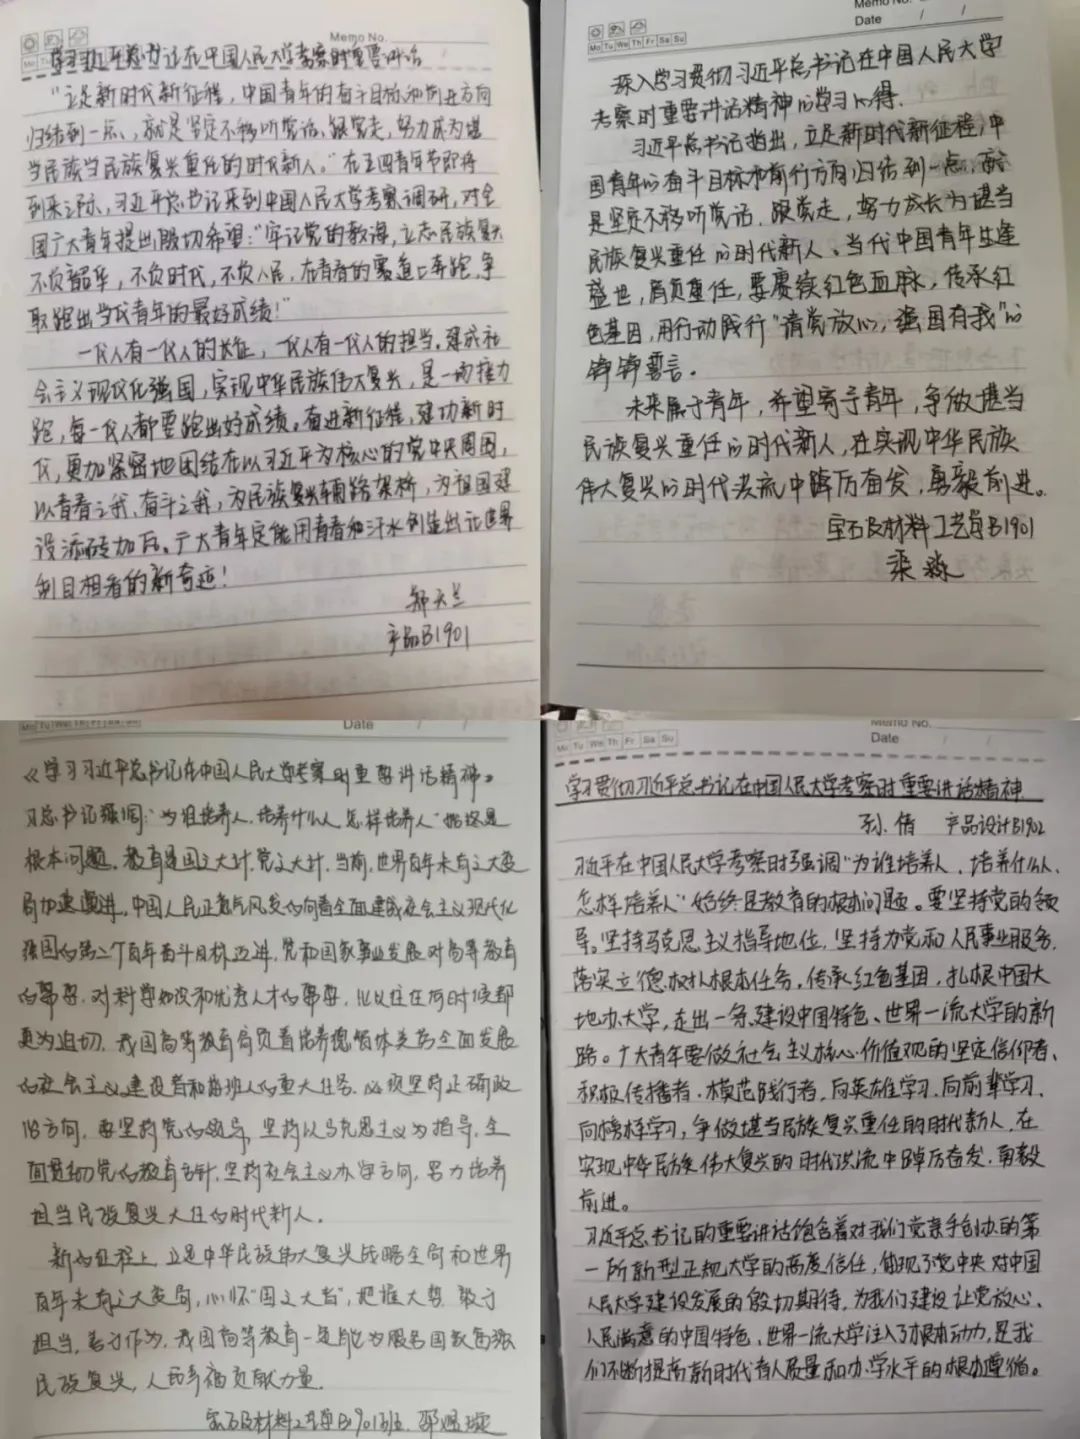 Memo No.
学习习近平总书记在中国人民大学考察时重要讲话
“立足新时代新征程，中国青年的奋斗目标和前进方向
归结到一点，就是坚定不移听党话、跟党走，努力成为堪
当民族当民族复兴重任的时代新人。”在五四青年节即将
到来之际，习近平总书记来到中国人民大学考察调研，对全
国广大青年提出殷切希望：“牢记党的教诲，立志民族复兴
不负韶华，不负时代，不负人民，在青春的赛道上奔跑，争
取跑出当代青年的最好成绩！”
一代人有一代人的长征，一代人有一代人的担当。建成社
会主义现代化强国，实现中华民族伟大复兴，是一场接力
跑，每一代人都要跑出好成绩。奋进新征程，建功新时
代，更加紧密地团结在以习近平为核心的党中央周围，
以青春之我，奋斗之我，为民族复兴铺路架桥，为祖国建
设添砖加瓦。广大青年定能用青春和汗水创造出让世界
刮目相看的新奇迹！
郑天兰
产品B1901
Memo No.
Date / /
Mo Tu We Th Fr Sa Su
深入学习贯彻习近平总书记在中国人民大学
考察时重要讲话精神的学习心得.
习近平总书记指出，立足新时代新征程，中
国青年的奋斗目标和前行方向归结到一点，就
是坚定不移听党话、跟党走，努力成长为堪当
民族复兴重任的时代新人。当代中国青年生逢
盛世，肩负重任，要赓续红色血脉，传承红
色基因，用行动践行“请党放心，强国有我”的
铮铮誓言。
未来属于青年，希望寄予青年，争做堪当
民族复兴重任的时代新人，在实现中华民族
伟大复兴的时代洪流中踔厉奋发，勇毅前进。
宝石及材料工艺学B1901
梁淼
Date / /
《学习习近平总书记在中国人民大学考察时重要讲话精神》
习总书记强调：“为谁培养人，培养什么人，怎样培养人”始终是
根本问题。教育是国之大计，党之大计，当前，世界百年未有之大变
局加速演进，中国人民正意气风发的向着全面建成社会主义现代化
强国的第二个百年奋斗目标迈进，党和国家事业发展对高等教育
的需要，对科学知识和优秀人才的需要，比以往任何时候都
更为迫切，我国高等教育肩负着培养德智体美劳全面发展
的社会主义建设者和接班人的重大任务，必须坚持正确政
治方向，要坚持党的领导，坚持以马克思主义为指导，全
面贯彻党的教育方针，坚持社会主义办学方向，努力培养
担当民族复兴大任的时代新人。
新的征程上，立足中华民族伟大复兴战略全局和世界
百年未有之大变局，心怀“国之大者”，把握大势，敢于
担当，善于作为，我国高等教育一定能为服务国家富强
民族复兴，人民幸福贡献力量.
宝石及材料工艺学B1901班班. 邵煜璇
Memo No.
Date / /
Mo Tu We Th Fr Sa Su
学习贯彻习近平总书记在中国人民大学考察时重要讲话精神
孙倩 产品设计B1902
习近平在中国人民大学考察时强调“为谁培养人、培养什么人、
怎样培养人”始终是教育的根本问题。要坚持党的领
导。坚持马克思主义指导地位，坚持为党和人民事业服务，
落实立德树人根本任务。传承红色基因，扎根中国大
地办大学，走出一条建设中国特色、世界一流大学的新
路。广大青年要做社会主义核心价值观的坚定信仰者、
积极传播者、模范践行者，向英雄学习、向前辈学习、
向榜样学习，争做堪当民族复兴重任的时代新人，在
实现中华民族伟大复兴的时代洪流中踔厉奋发，勇毅
前进。
习近平总书记的重要讲话饱含着对我们党亲手创办的第
一所新型正规大学的高度信任，体现了党中央对中国
人民大学建设发展的殷切期待，为我们建设让党放心、
人民满意的中国特色、世界一流大学注入了根本动力，是我
们不断提高新时代育人质量和办学水平的根本遵循。